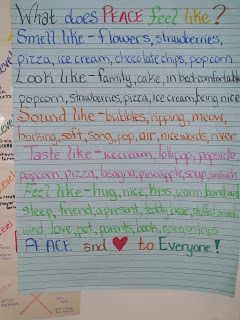 What does PEACE feel like?
Smell like - flowers, strawberries,
pizza, ice cream, chocolate chips, popcorn
Look like - family, cake, in bed comfortable
popcorn, strawberries, pizza, ice cream, being nice
Sound like - bubbles, ripping, meow,
barking, soft, song, pop, air, nice words, river
Taste like - icecream, lolipop, popsicle,
popcorn, pizza, lasagna, pineapple, soup, sandwich
Feel like - hug, nice, kiss, warm, hand
sleep, friend, a present, teddy bear, stuffed animal
wind, love, pet, parents, book, going on trips
PEACE and ♥ to Everyone!